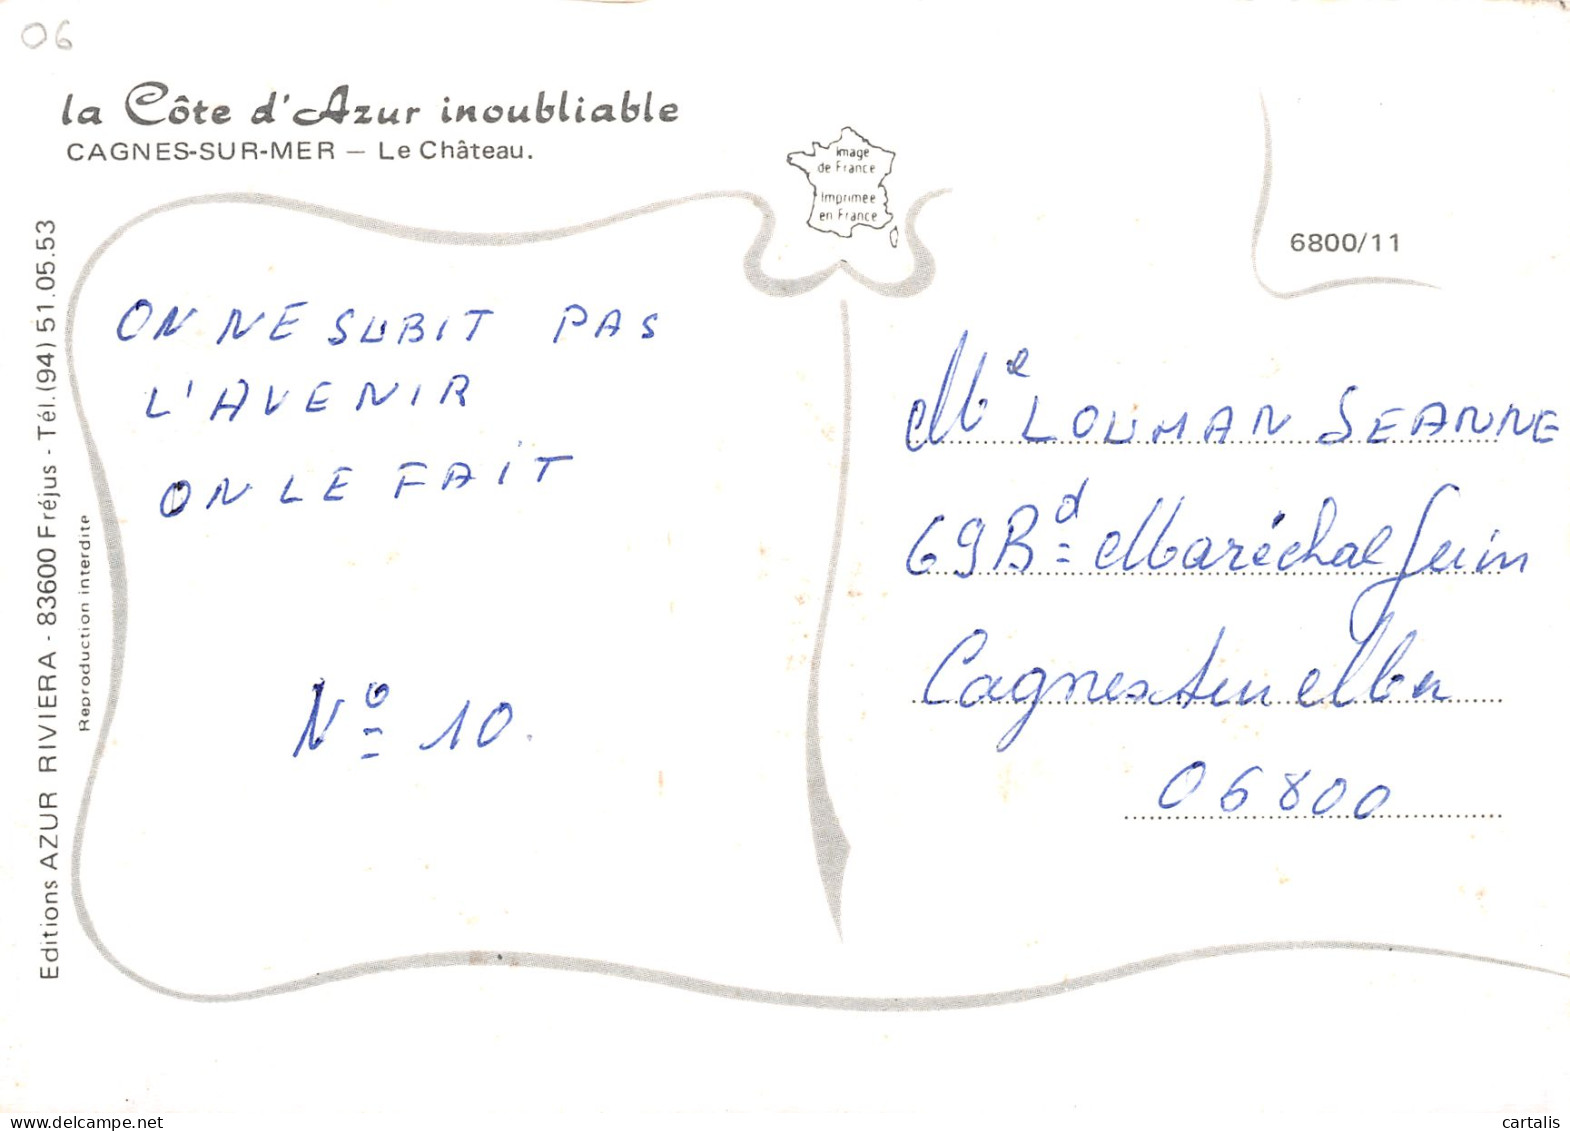 06
la Côte d'Azur inoubliable
CAGNES-SUR-MER — Le Château.
Image
de France
Imprimée
en France
6800/11
Editions AZUR RIVIERA - 83600 Fréjus - Tél.(94) 51.05.53
Reproduction interdite
ON NE SUBIT PAS
L'AVENIR
ON LE FAIT
Nº 10.
Me LOUMAN JEANNE
69 Bd Maréchal Juin
Cagnes Sur Mer
06800
cartalis